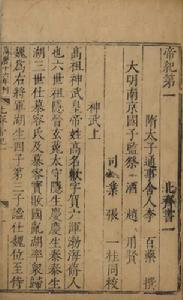 帝紀第一　北齊書一
隋太子通事舍人李　百藥　撰
大明南京國子監祭　酒　趙　用賢
司　業　張　一桂同校
神武上
高祖神武皇帝姓高名歡字賀六渾渤海蓨人
也六世祖隱晉玄菟太守隱生慶慶生泰泰生
湖三世仕慕容氏及慕容寶敗國亂湖率衆歸
魏爲右將軍湖生四子第三子謐仕魏位至侍